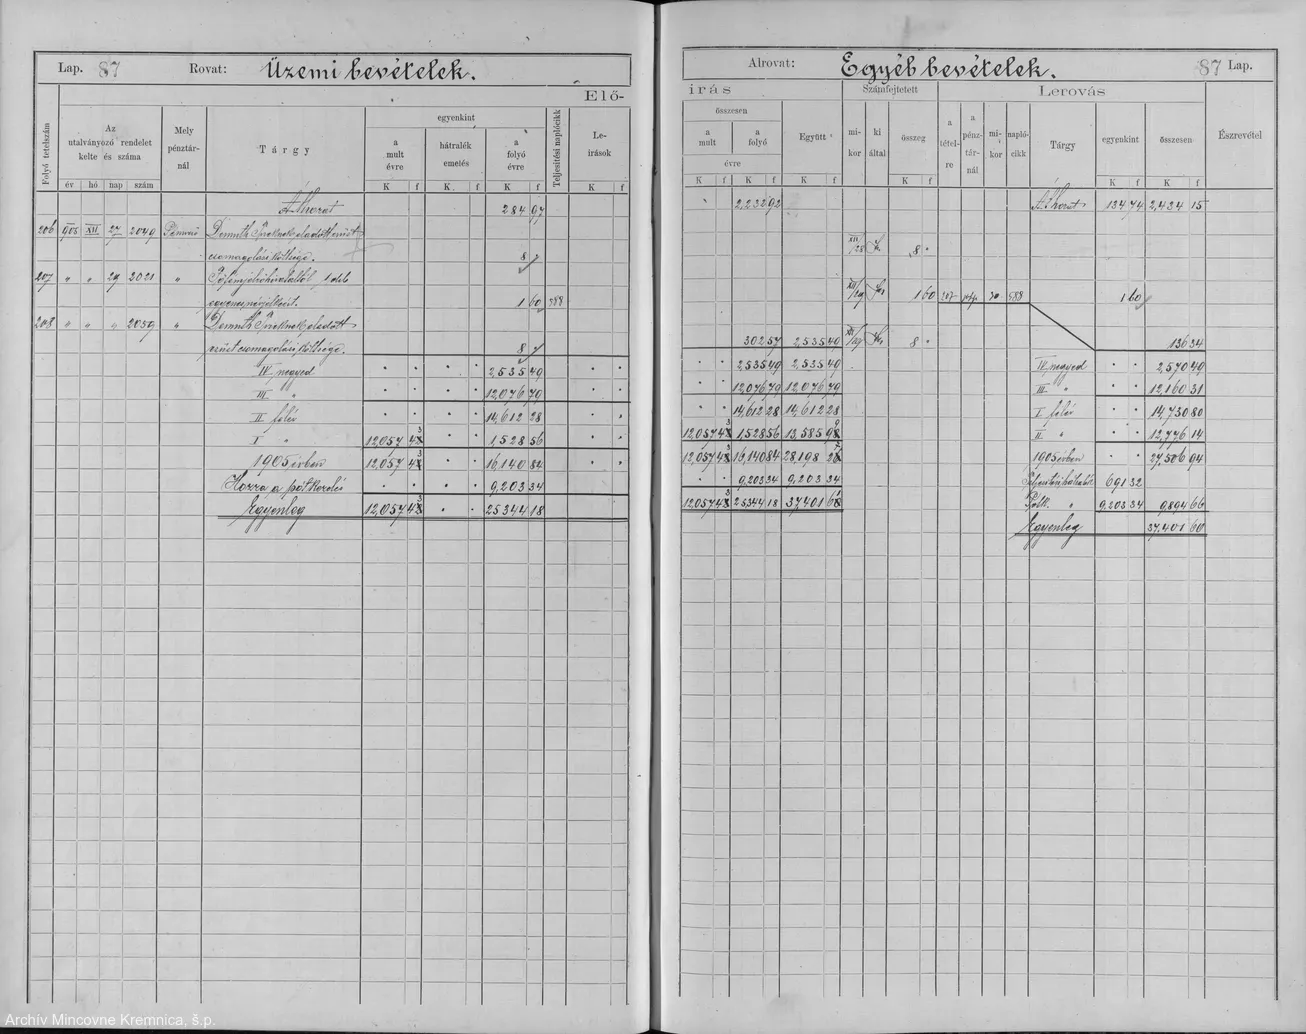 Lap. 87 Rovat: Üzemi bevételek.
Elő-
Folyó tételszám
Az utalványozó rendelet kelte és száma
év hó nap szám
Mely pénztárnál
Tárgy
egyenkint
a mult évre
hátralék emelés
a folyó évre
Teljesítési naplócikk
Leirások
K f K f K f K f
Áthozat 284 97
206 905 XII 27 2049 Pénzverő Demuth
csomagolási költsége. 8 "
207 " " 29 2021 " 1 deb
1 60 588
208 " " " 2059 " Demuth eladott
ezüst csomagolási költsége. 8 "
IV negyed " " " " 2,535 49 " "
III " " " " " 12,076 79 " "
II félév " " " " 14,612 28 " "
I " 12,057 43 " " 1,528 56 " "
1905 évben 12,057 43 " " 16,140 84 " "
Hozzá a pótkezelés " " " " 9,203 34
Egyenleg 12,057 43 " " 25344 18
Alrovat: Egyéb bevételek. 87 Lap.
irás
összesen
a mult
a folyó
évre
Együtt
Számfejtetett
mikor
ki által
összeg
Lerovás
a tételre
a pénztárnál
mikor
naplócikk
Tárgy
egyenkint
összesen
Észrevétel
K f K f K f K f K f K f
2,232 92 Áthozat 134 74 2,434 15
XII/28 8 "
XII/29 1 60 207 30 588 1 60
302 57 2,535 49 XII/29 8 " 136 34
" " 2,535 49 2,535 49 IV negyed " " 2,570 49
" " 12,076 79 12,076 79 III " " " 12,160 31
" " 14,612 28 14,612 28 I félév " " 14,730 80
12,057 43 1,528 56 13,585 99 II " " " 12,776 14
12,057 43 16,140 84 28,198 27 1905 évben " " 27,506 94
" " 9,203 34 9,203 34 691 32
12,057 43 25344 18 37,401 61 Pótk. " 9,203 34 9,894 66
Egyenleg 37,401 60
Archív Mincovne Kremnica, š.p.